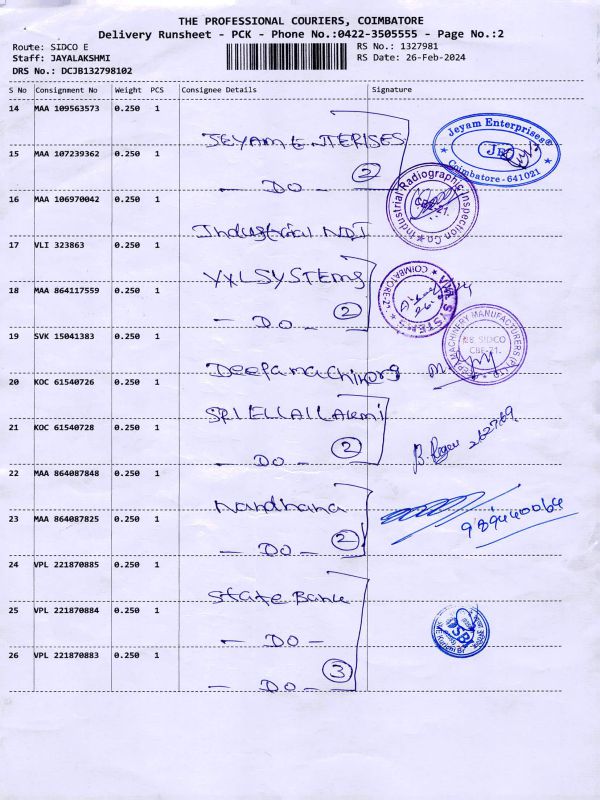 THE PROFESSIONAL COURIERS, COIMBATORE
Delivery Runsheet - PCK - Phone No.:0422-3505555 - Page No.:2
Route: SIDCO E
RS No.: 1327981
Staff: JAYALAKSHMI
RS Date: 26-Feb-2024
DRS No.: DCJB132798102
S No Consignment No Weight PCS Consignee Details Signature
14 MAA 109563573 0.250 1 JEYAM ENTERISES
Jeyam Enterprises®
JE
Coimbatore - 641021
15 MAA 107239362 0.250 1 - DO - 2
16 MAA 106970042 0.250 1 Industrial NDT
Industrial Radiographic Inspection Co
CBE-21.
17 VLI 323863 0.250 1 VXL SYSTEMS
VXL SYSTEMS
COIMBATORE-21
18 MAA 864117559 0.250 1 - DO - 2
19 SVK 15041383 0.250 1 Deepa machiners
MACHINERY MANUFACTURERS (P)
SIDCO
CBE-21.
20 KOC 61540726 0.250 1 SRI ELLAI LAxmi
21 KOC 61540728 0.250 1 - DO - 2
22 MAA 864087848 0.250 1 Nandhana
23 MAA 864087825 0.250 1 - DO - 2
24 VPL 221870885 0.250 1 State Bank
25 VPL 221870884 0.250 1 - DO -
SBI
26 VPL 221870883 0.250 1 - DO - 3